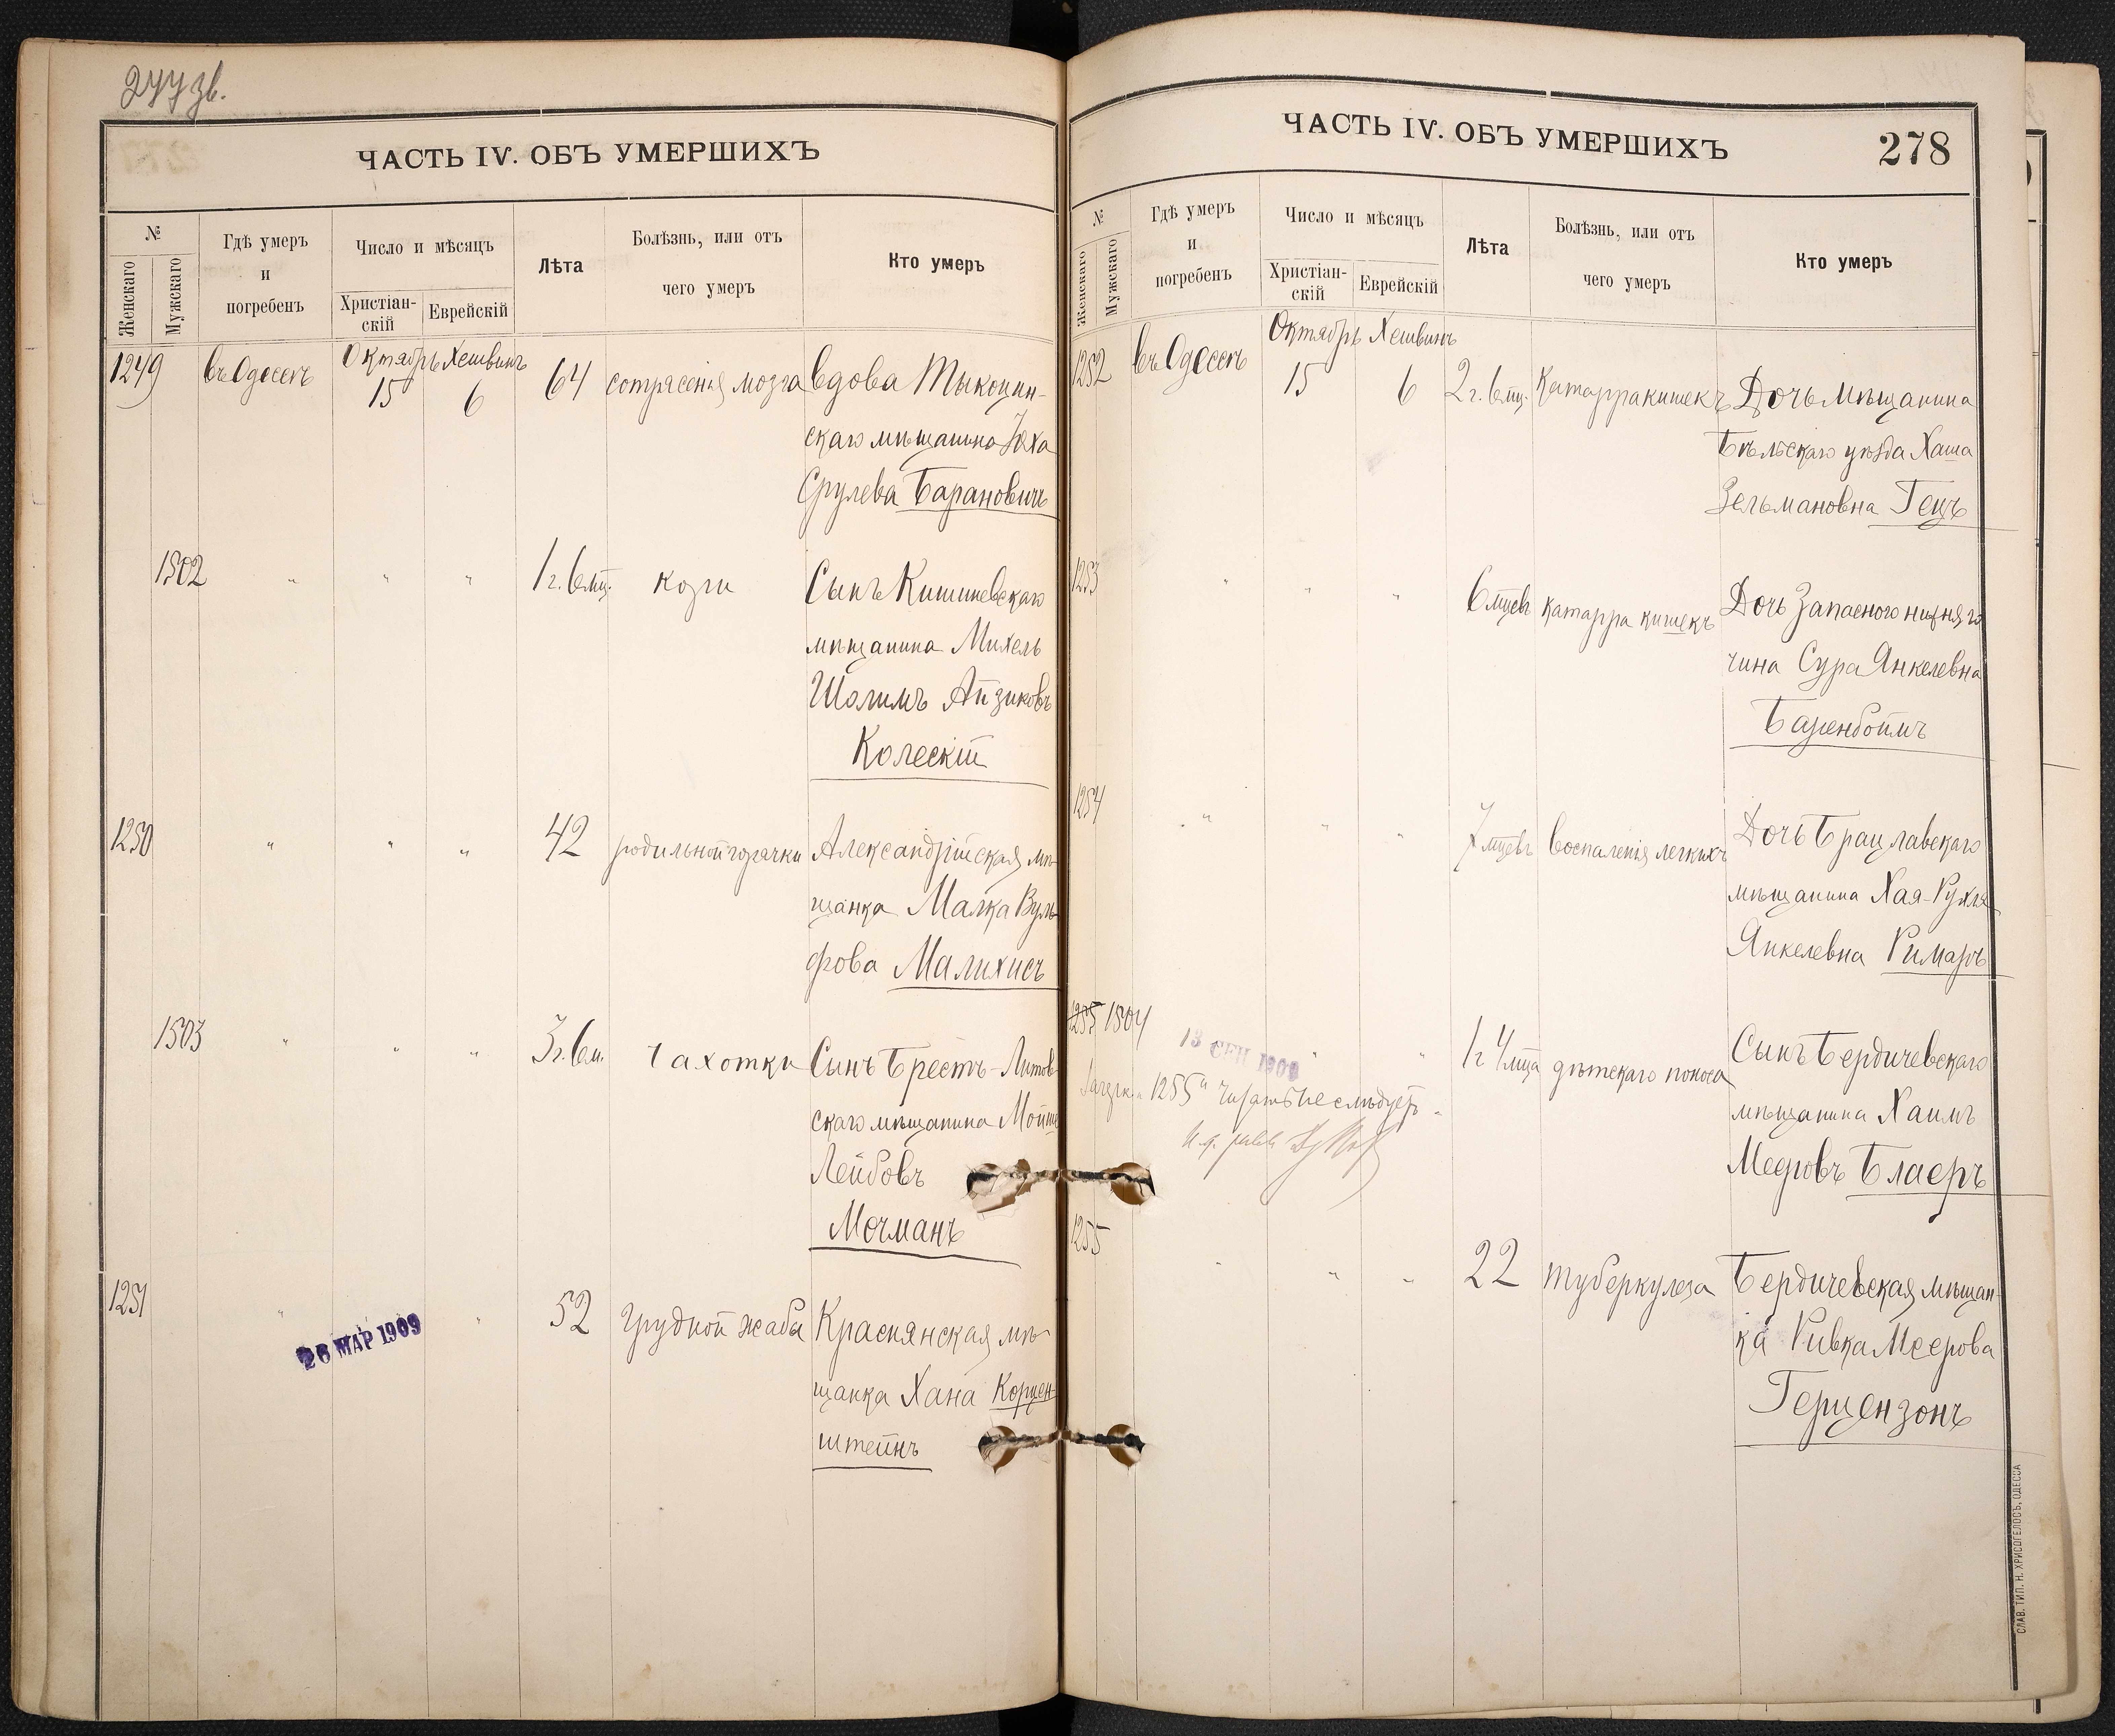 277 зв.
ЧАСТЬ IV. ОБЪ УМЕРШИХЪ
№
Женскаго
Мужскаго
Гдѣ умеръ
и
погребенъ
Число и мѣсяцъ
Христіан-
скій
Еврейскій
Лѣта
Болѣзнь, или отъ
чего умеръ
Кто умеръ
Октябрь Хешвинъ
1249 въ Одессѣ 15 6 64 сотрясенія мозга вдова Тыкоцин-
скаго мѣщанина
Срулева Барановичъ
1502 " " " 1 г. 6 мц. кори Сынъ Кишиневскаго
мѣщанина Михель
Шолимъ Айзиковъ
Колескій
1250 " " " 42 родильной горячки Александрійская мѣ-
щанка Малка Вуль-
фова Малихисъ
1503 " " " 3 г. 6 м. чахотки Сынъ Брестъ-Литов-
скаго мѣщанина Мойше
Лейбовъ
Мочманъ
1251 " " 52 грудной жабы Краснянская мѣ-
щанка Хана Корцен-
штейнъ
26 МАР 1909
ЧАСТЬ IV. ОБЪ УМЕРШИХЪ
278
№
Женскаго
Мужскаго
Гдѣ умеръ
и
погребенъ
Число и мѣсяцъ
Христіан-
скій
Еврейскій
Лѣта
Болѣзнь, или отъ
чего умеръ
Кто умеръ
Октябрь Хешвинъ
1252 въ Одессѣ 15 6 2 г. 6 мц. Катарра кишекъ Дочь мѣщанина
Бѣльскаго уѣзда Хаша
Зельмановна Гецъ
1253 " " " 6 мцевъ катарра кишекъ Дочь Запасного нижняго
чина Сура Янкелевна
Баренбоймъ
1254 " " " 7 мцевъ воспаленія легкихъ Дочь Брацлавскаго
мѣщанина Хая-Рухля
Янкелевна Римаръ
1255 1504 " " 1 г 4 мца дѣтскаго поноса Сынъ Бердичевскаго
мѣщанина Хаимъ
Медровъ Блаеръ
13 СЕН 1909
1255" читать не слѣдуетъ
1255 " " " 22 туберкулеза Бердичевская мѣщан-
ка Ривка Меерова
Герцензонъ
СЛАВ. ТИП. Н. ХРИСОГЕЛОСЪ, ОДЕССА